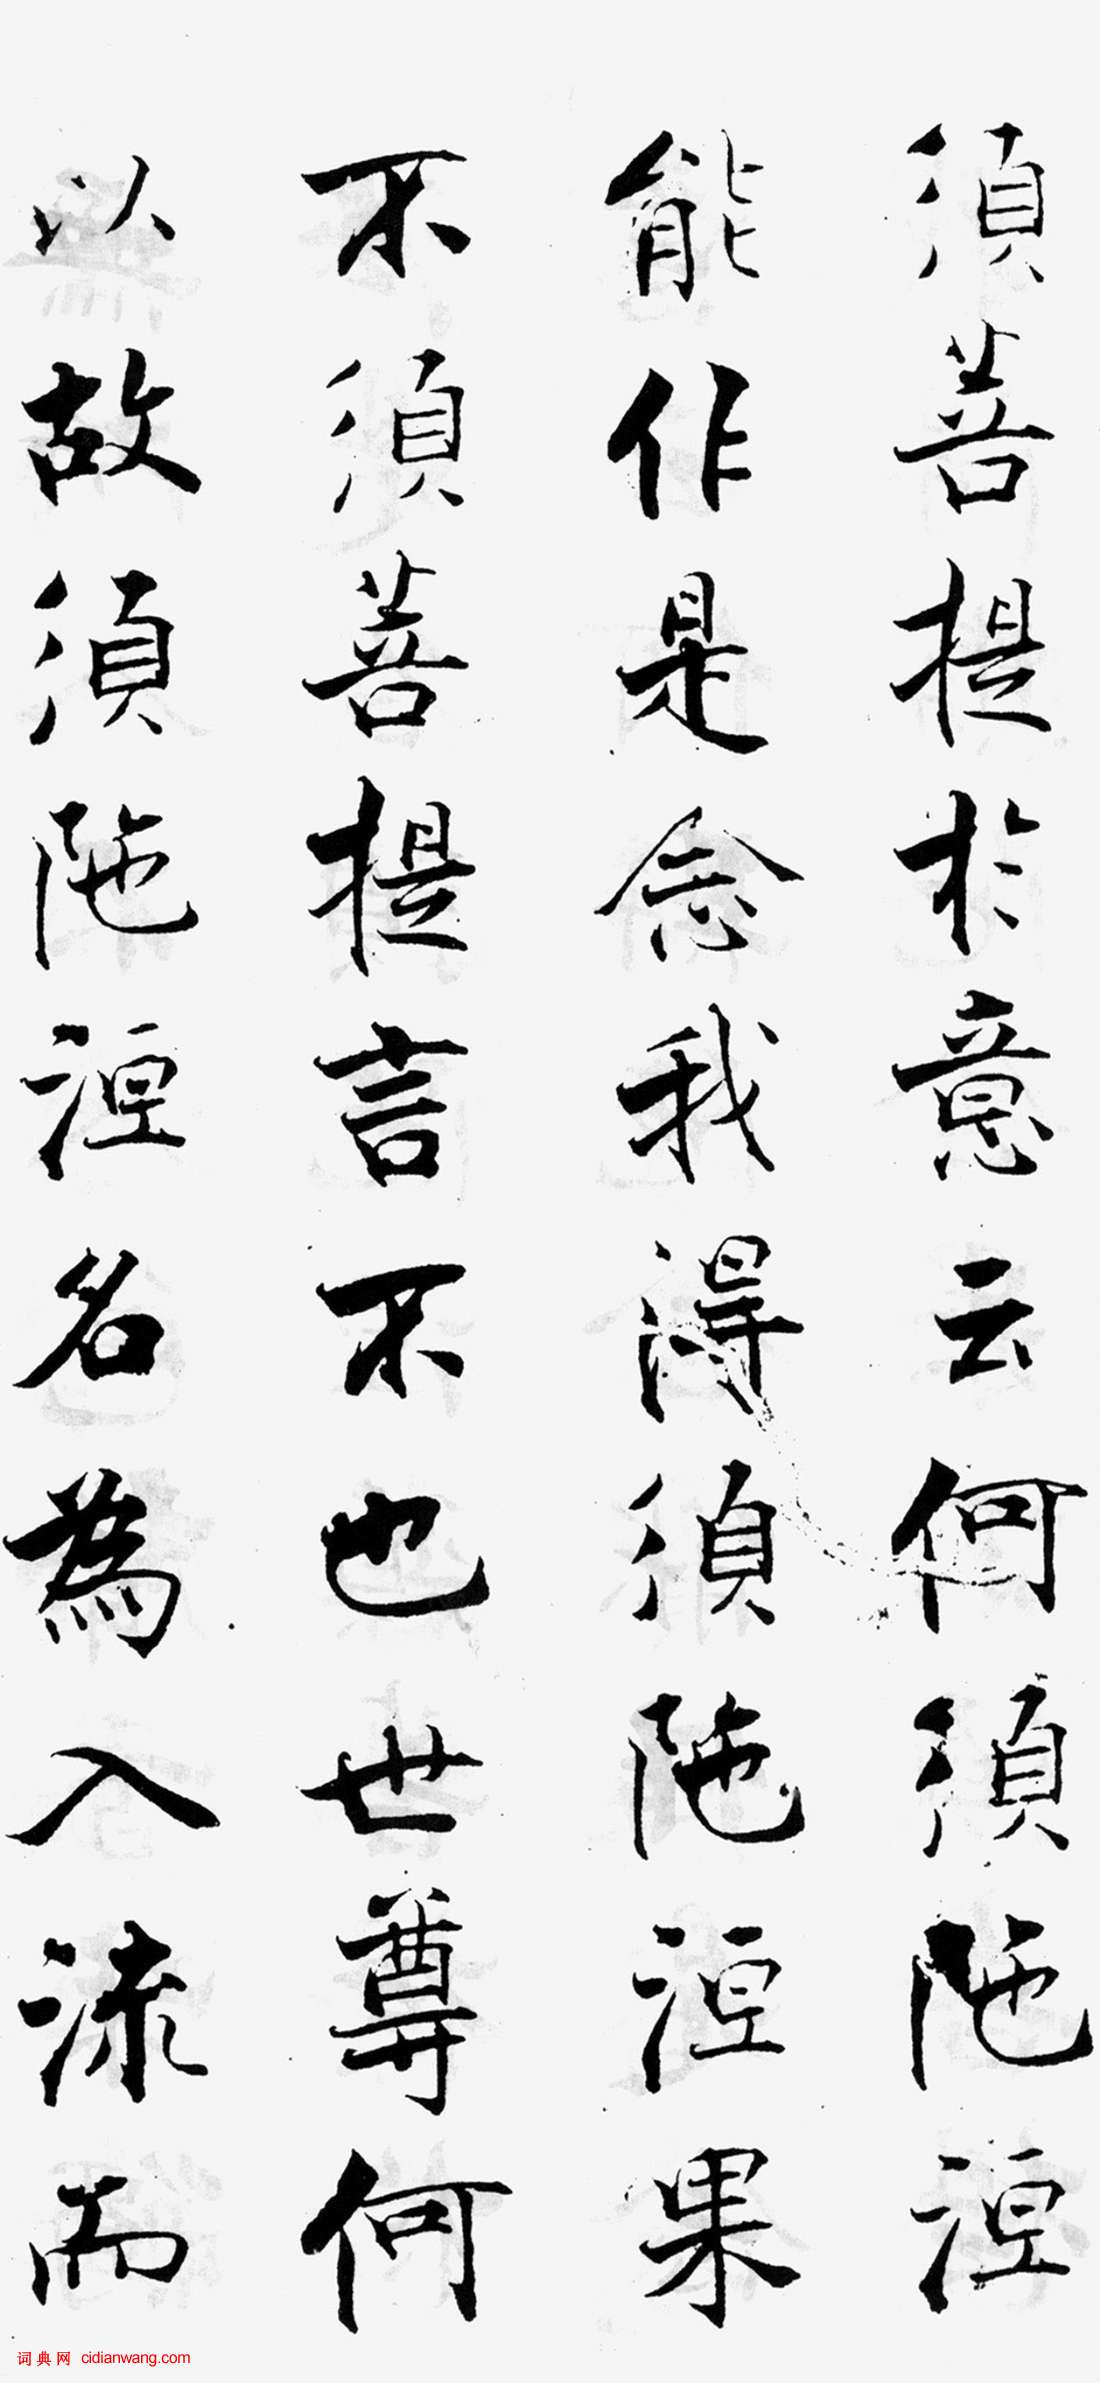 須菩提於意云何須陁洹
能作是念我得須陁洹果
不須菩提言不也世尊何
以故須陁洹名為入流而
词典网 cidianwang.com